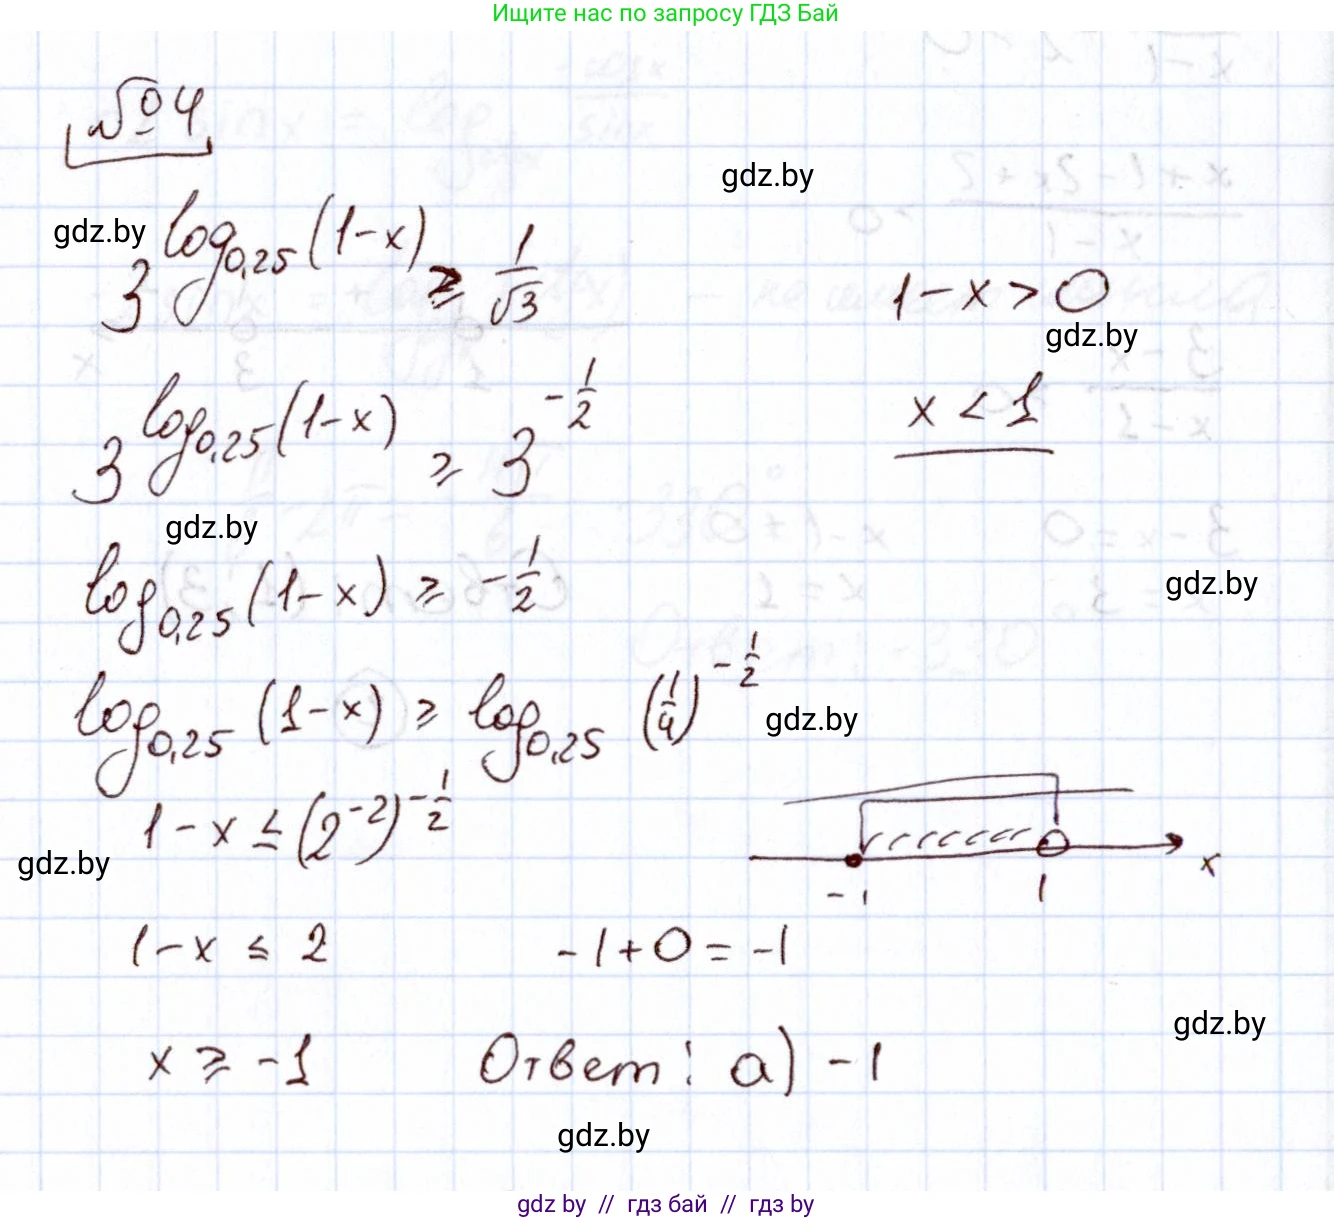 Ищите нас по запросу ГДЗ Бай
№4
gdz.by
gdz.by
3^(log_0,25 (1-x)) ≥ 1/√3
1-x > 0
gdz.by
3^(log_0,25 (1-x)) ≥ 3^(-1/2)
x < 1
gdz.by
log_0,25 (1-x) ≥ -1/2
gdz.by
log_0,25 (1-x) ≥ log_0,25 (1/4)^(-1/2)
gdz.by
1-x ≤ (2^(-2))^(-1/2)
gdz.by
-1 1 x
1-x ≤ 2
-1+0=-1
gdz.by
x ≥ -1
Ответ: а) -1
gdz.by
gdz by // гдз бай // гдз by